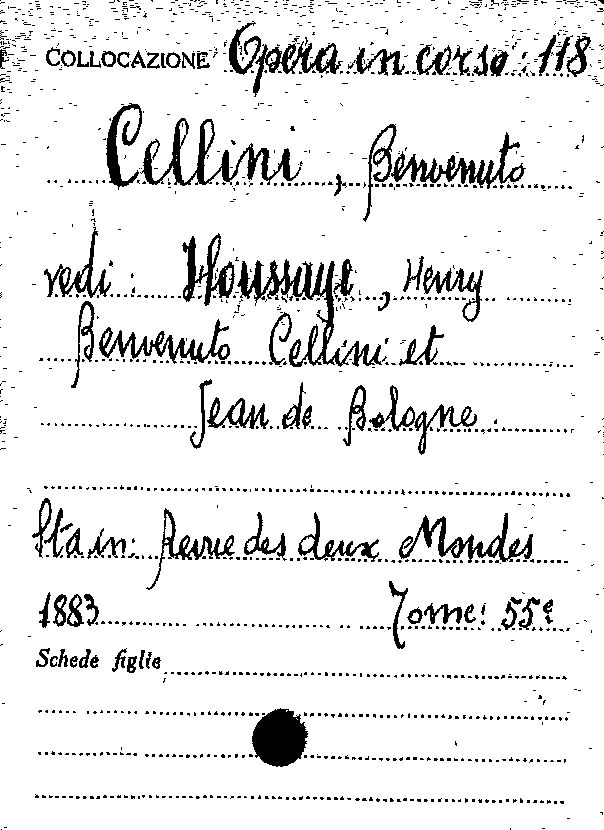 COLLOCAZIONE Opera in corso: 118
Cellini, Benvenuto
vedi: Houssaye, Henry
Benvenuto Cellini et
Jean de Bologne.
Sta in: Revue des deux Mondes
1883 Tome: 55e
Schede figlie